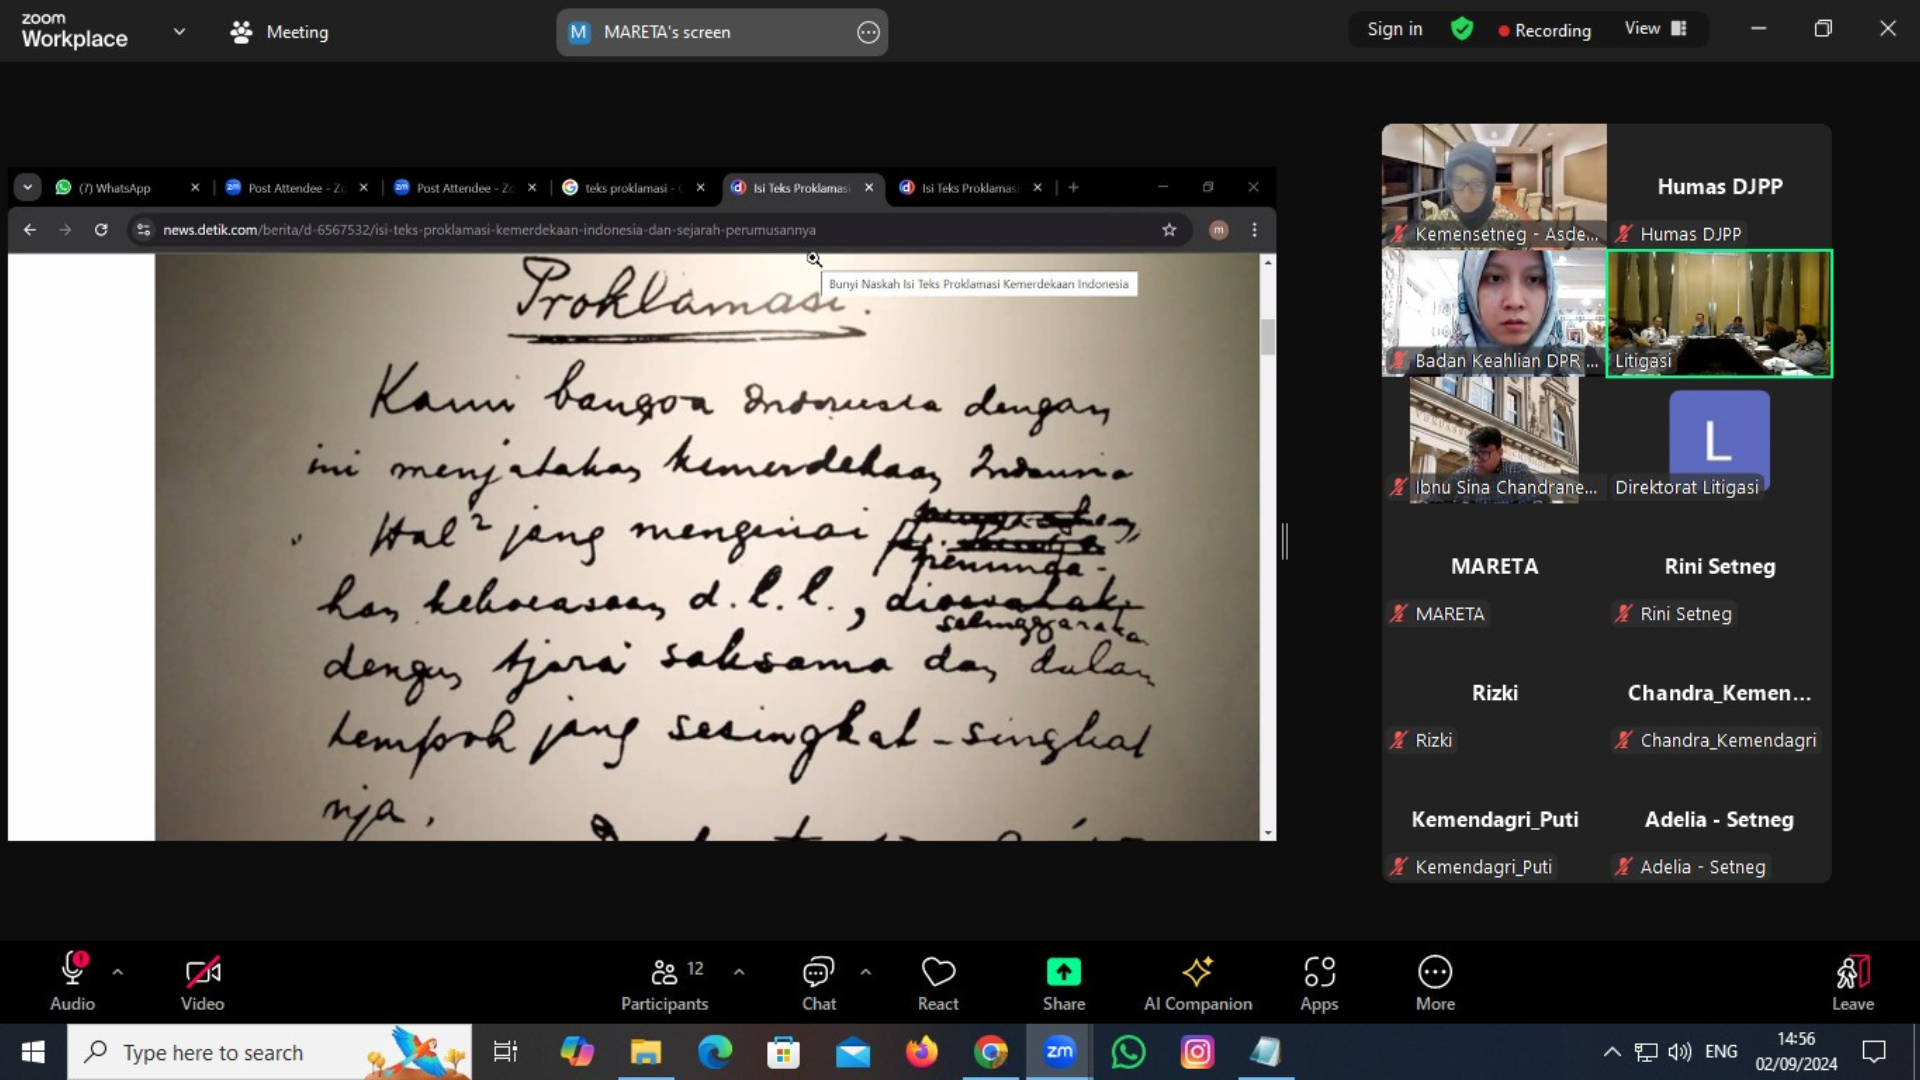 zoom
Workplace
Meeting
M MARETA's screen
Sign in
Recording
View
(7) WhatsApp
Post Attendee - Zo
Post Attendee - Zo
teks proklamasi - G
Isi Teks Proklamasi
Isi Teks Proklamasi
news.detik.com/berita/d-6567532/isi-teks-proklamasi-kemerdekaan-indonesia-dan-sejarah-perumusannya
m
Bunyi Naskah Isi Teks Proklamasi Kemerdekaan Indonesia
Proklamasi.
Kami bangsa Indonesia dengan
ini menjatakan kemerdekaan Indonesia
Hal² jang mengenai
peminda-
han kekoeasaan d.l.l., dioesahakan
selenggarakan
dengan tjara saksama dan dalam
tempoh jang sesingkat-singkat
nja.
Kemensetneg - Asde...
Humas DJPP
Humas DJPP
Badan Keahlian DPR ...
Litigasi
Ibnu Sina Chandrane...
L
Direktorat Litigasi
MARETA
MARETA
Rini Setneg
Rini Setneg
Rizki
Rizki
Chandra_Kemen...
Chandra_Kemendagri
Kemendagri_Puti
Kemendagri_Puti
Adelia - Setneg
Adelia - Setneg
Audio
Video
12
Participants
Chat
React
Share
AI Companion
Apps
More
Leave
Type here to search
zm
ENG
14:56
02/09/2024